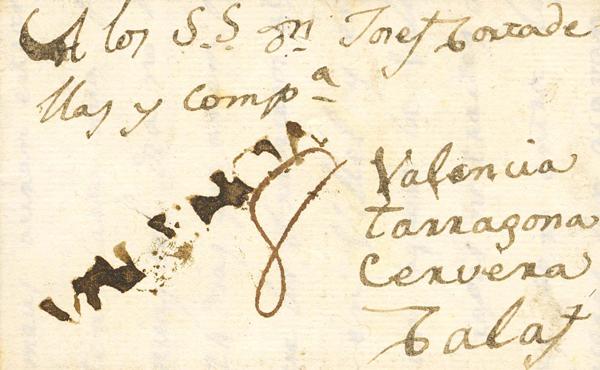 A los S.S. dn Josef Cortade
llas y compa
8
Valencia
Tarragona
Cervera
Calaf